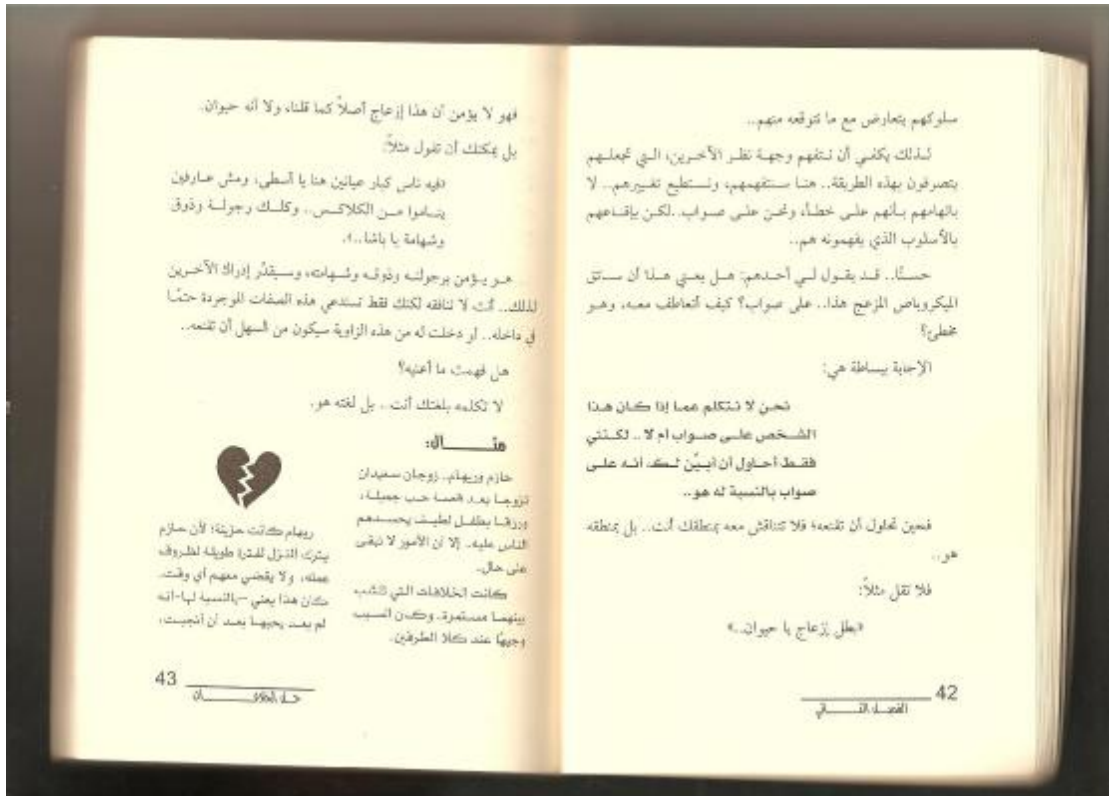 سلوكهم يتعارض مع ما نتوقعه منهم..
لـذلك يكفـي أن نـتفهم وجهـة نظـر الآخـرين، الـتي تجعلـهم
يتصرفون بهذه الطريقة.. هنـا سـنتفهمهم، ونـستطيع تغـييرهم.. لا
باتهامهم بـأنهم علـى خطـأ، ونحـن علـى صـواب.. لكـن بإقنـاعهم
بالأسلوب الذي يفهمونه هم..
حسـنًا.. قـد يقـول لـي أحـدهم: هـل يعـني هـذا أن سـائق
الميكروباص المزعج هذا.. على صواب؟ كيف أتعاطف معـه، وهـو
مخطئ؟
الإجابة ببساطة هي:
نحـن لا نـتكلم عمـا إذا كـان هـذا
الشـخص علـى صـواب أم لا.. لكـنني
فقـط أحـاول أن أبـيّن لـك أنـه علـى
صواب بالنسبة له هو..
فحين تحاول أن تقنعه؛ فلا تتناقش معه بمنطقك أنت.. بل بمنطقه
هو..
فلا تقل مثلاً:
«بطل إزعاج يا حيوان..»
42
الفصـل الثـــانـي
فهو لا يؤمن أن هذا إزعاج أصلاً كما قلنا، ولا أنه حيوان.
بل يمكنك أن تقول مثلاً:
«فيه ناس كبار عيانين هنا يا أسطى، ومش عـارفين
ينـاموا مـن الكلاكـس.. وكلـك رجولـة وذوق
وشهامة يا باشا..».
هـو يـؤمن برجولتـه وذوقـه وشـهامته، وسـيقدّر إدراك الآخـرين
لذلك.. أنت لا تنافقه لكنك فقط تستدعي هذه الصفات الموجودة حتمًـا
في داخله.. لو دخلت له من هذه الزاوية سيكون من السهل أن تقنعه..
هل فهمت ما أعنيه؟
لا تكلمه بلغتك أنت.. بل لغته هو.
مثـــــــال:
حازم وريهام.. زوجان سعيدان
تزوجـا بعـد قصـة حـب جميلـة،
ورزقـا بطفـل لطيـف يحسـدهم
الناس عليه.. إلا أن الأمور لا تبقى
على حال.
كانت الخلافات التي تنشب
بينهمـا مسـتمرة.. وكـان السـبب
وجيهًا عند كلا الطرفين.
ريهام كانت حزينة؛ لأن حازم
يترك المنزل لفترة طويلة لظـروف
عمله، ولا يقضي معهم أي وقـت.
كان هذا يعني -بالنسبة لهـا- أنه
لم يعـد يحبهـا بعـد أن أنجبـت،
43